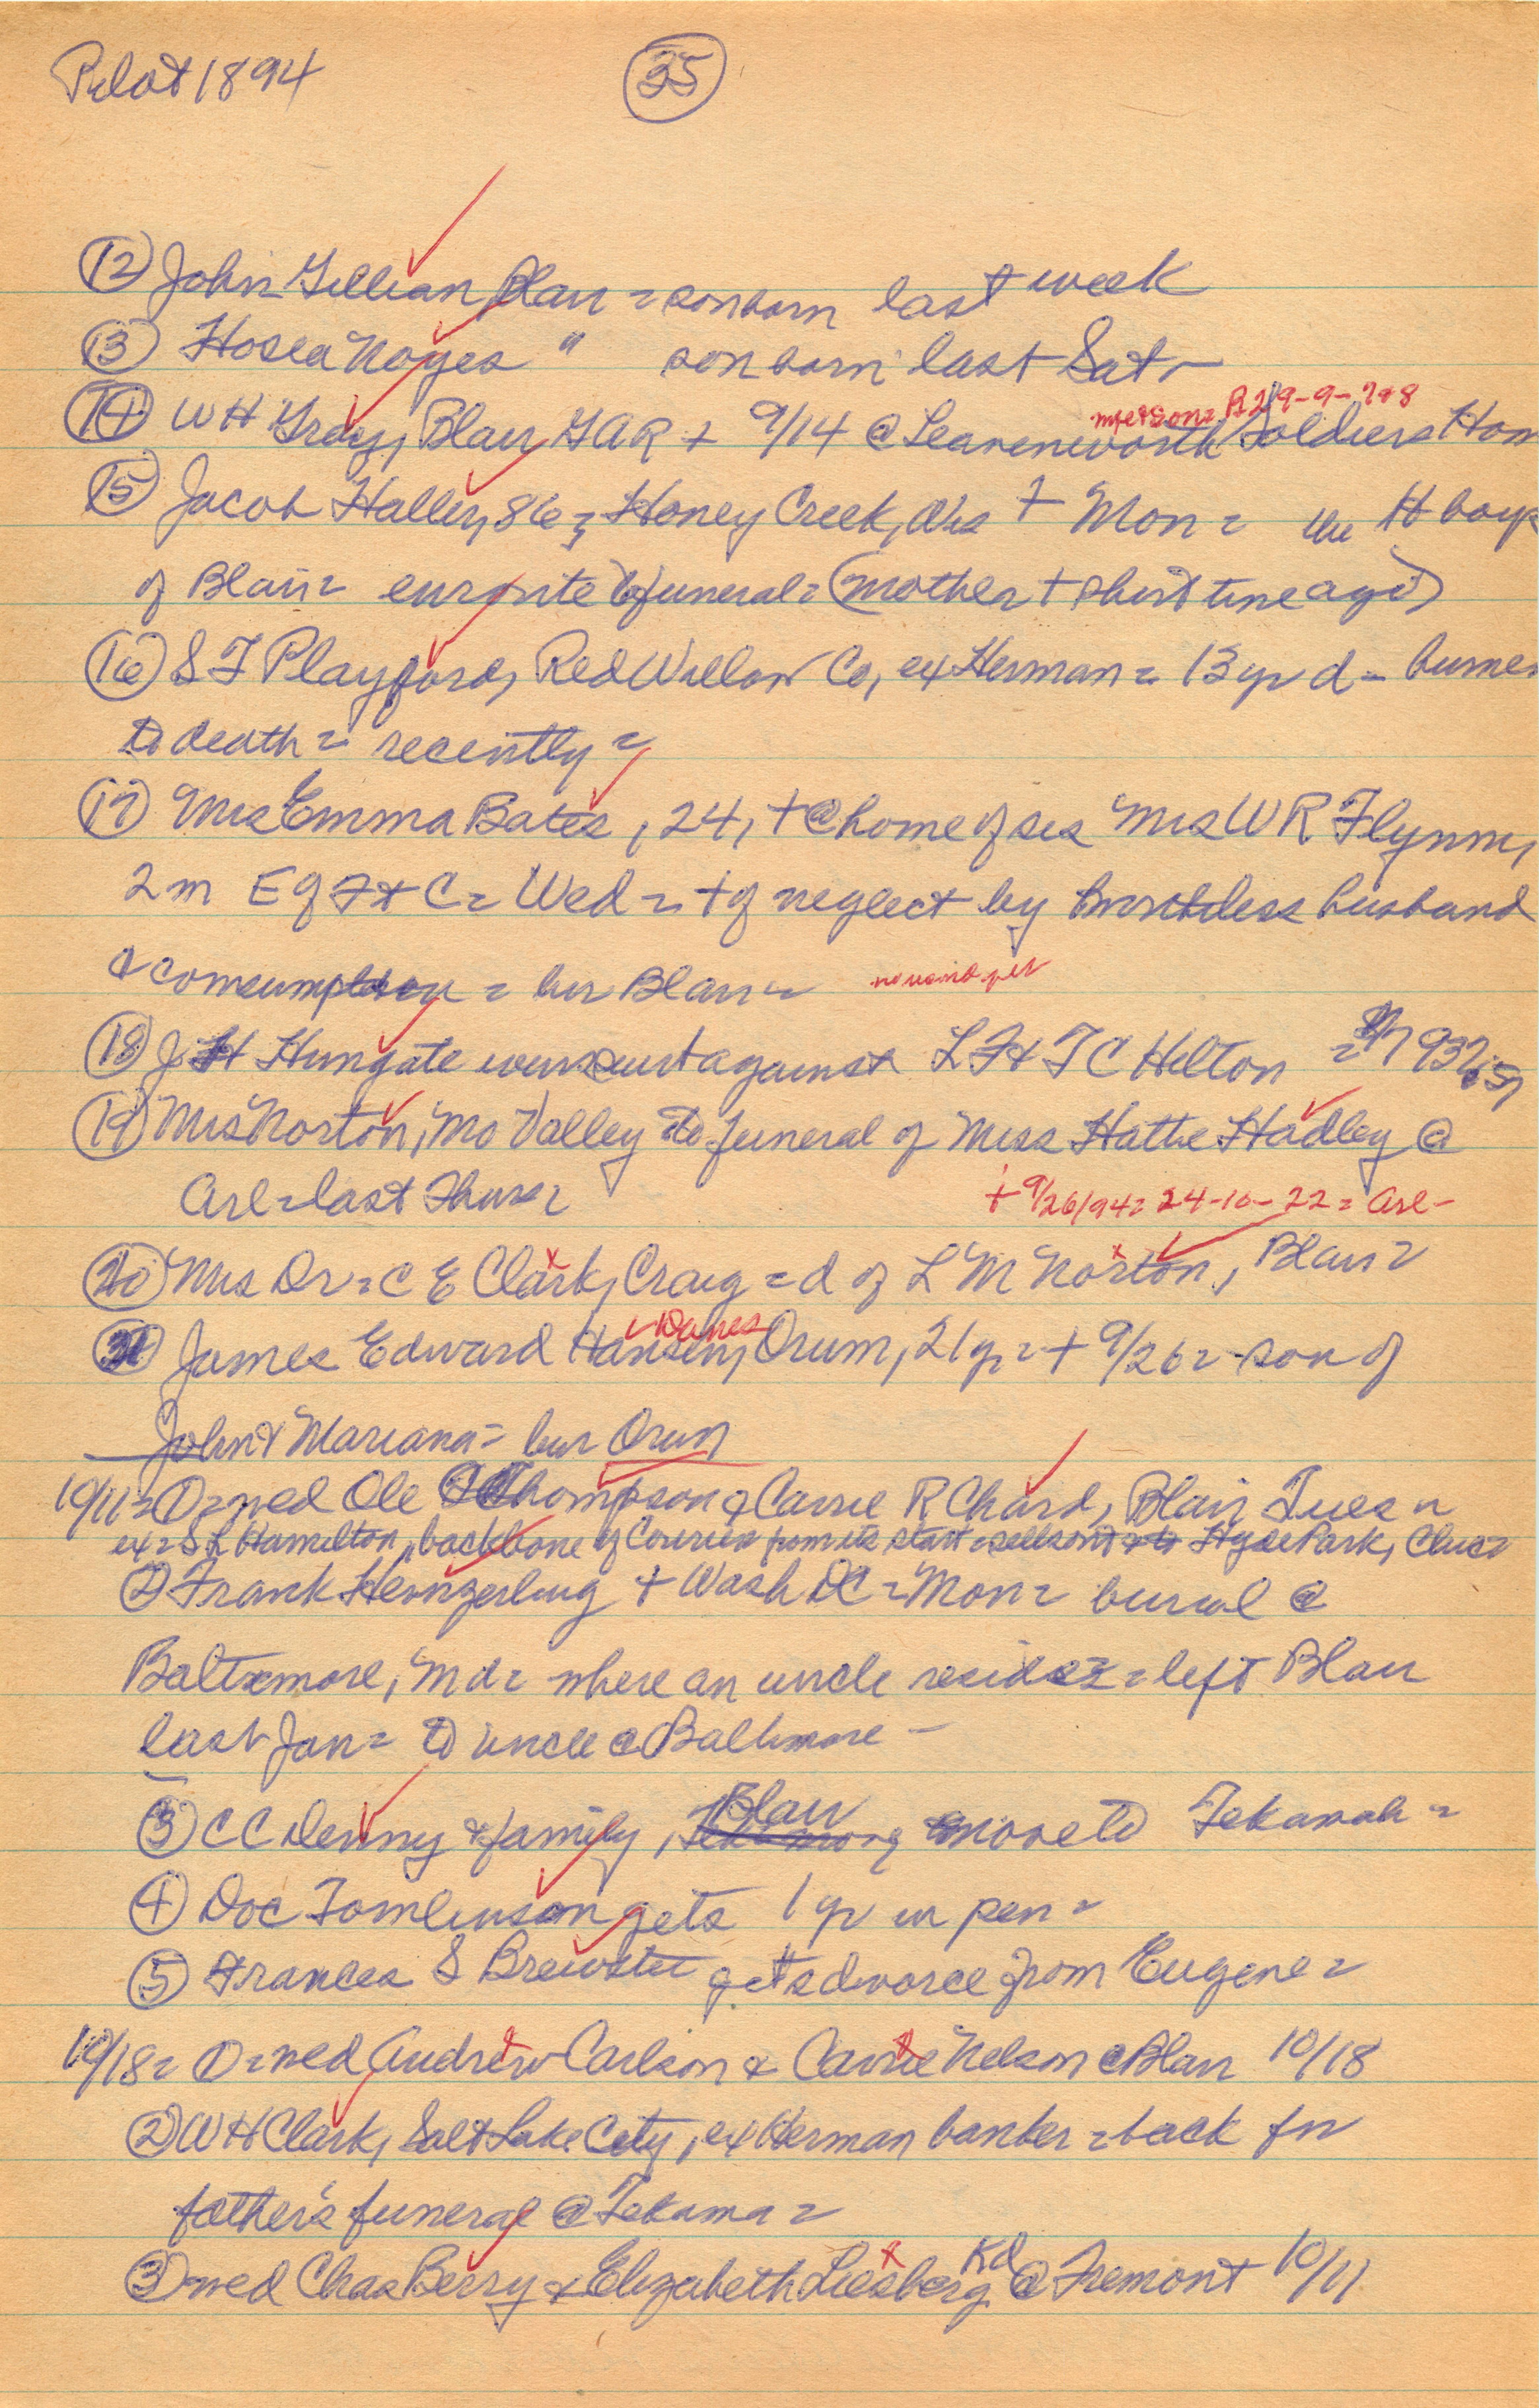 Pilot 1894 (35)
(12) John Gillian Blair = son born last week
(13) Hosea Noyes " son born last Sat -
(14) WH Gray, Blair GAR + 9/14 @ Leavenworth Soldiers Hom
(15) Jacob Haller, 86 = Honey Creek, Wis + Mon = the H boys
of Blair = enroute to funeral = (mother + short time ago)
(16) S F Playford, Red Willow Co, ex Herman = 13 yr d - burned
to death = recently =
(17) Mrs Emma Bates, 24, + @ home of sis Mrs W R Flynn,
2 m E of Ft C = Wed = + of neglect by worthless husband
& comsumption = bur Blair =
(18) J H Hungate wins suit against L F & T C Hilton =
(19) Mrs Norton, Mo Valley to funeral of Miss Hattie Hadley @
Arl = last Thurs =
+ 9/26/94 = 24-10-22 = Arl -
(20) Mrs Dr = C E Clark, Craig = d of L M Norton, Blair =
Danes
(21) James Edward Hansen, Orum, 21 yr = + 9/26 = son of
John & Mariana = bur Orum
10/11 = (1) = wed Ole Thompson & Carrie R Chard, Blair Tues =
ex = S L Hamilton, "backbone of Courier from its start = sells out Hyde Park, Chic =
(2) Frank + Wash DC = Mon = burial @
Baltimore, Md = where an uncle resides = left Blair
last Jan = to uncle @ Baltimore -
(3) C C Denny & family, Blair move to Tekamah =
(4) Doc Tomlinson gets 1 yr in pen =
(5) Frances S Brewster gets divorce from Eugene =
10/18 = (1) = wed Andrew Carlson & Carrie Nelson @ Blair 10/18
(2) W H Clark, Salt Lake City, ex Herman banker = back for
father's funeral @ Tekama =
(3) wed Chas Berry & Elizabeth Liesberg Kd @ Fremont 10/11